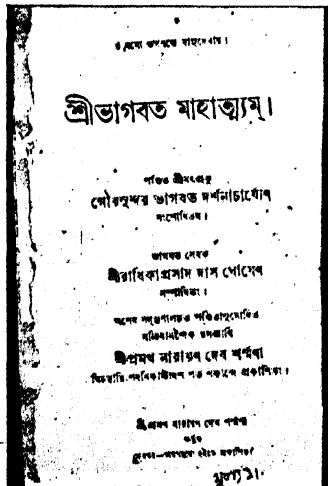 ওঁ নমো ভগবতে বাসুদেবায়।
শ্রীভাগবত মাহাত্ম্যম্।
পণ্ডিত শ্রীমৎপ্রভু
গৌরসুন্দর ভাগবত দর্শনাচার্য্যেণ
সংশোধিতম্।
ভাগবত সেবক
শ্রীরাধিকাপ্রসাদ দাস ঘোষেণ
সম্পাদিতং।
অশেষ
শ্রীপ্রমথ নারায়ণ দেব শর্ম্মণা
শত শকাব্দে প্রকাশিতং।
শ্রীপ্রমথ নারায়ণ দেব শর্ম্মা
কর্তৃক
হইতে প্রকাশিত।
মূল্য ১৲